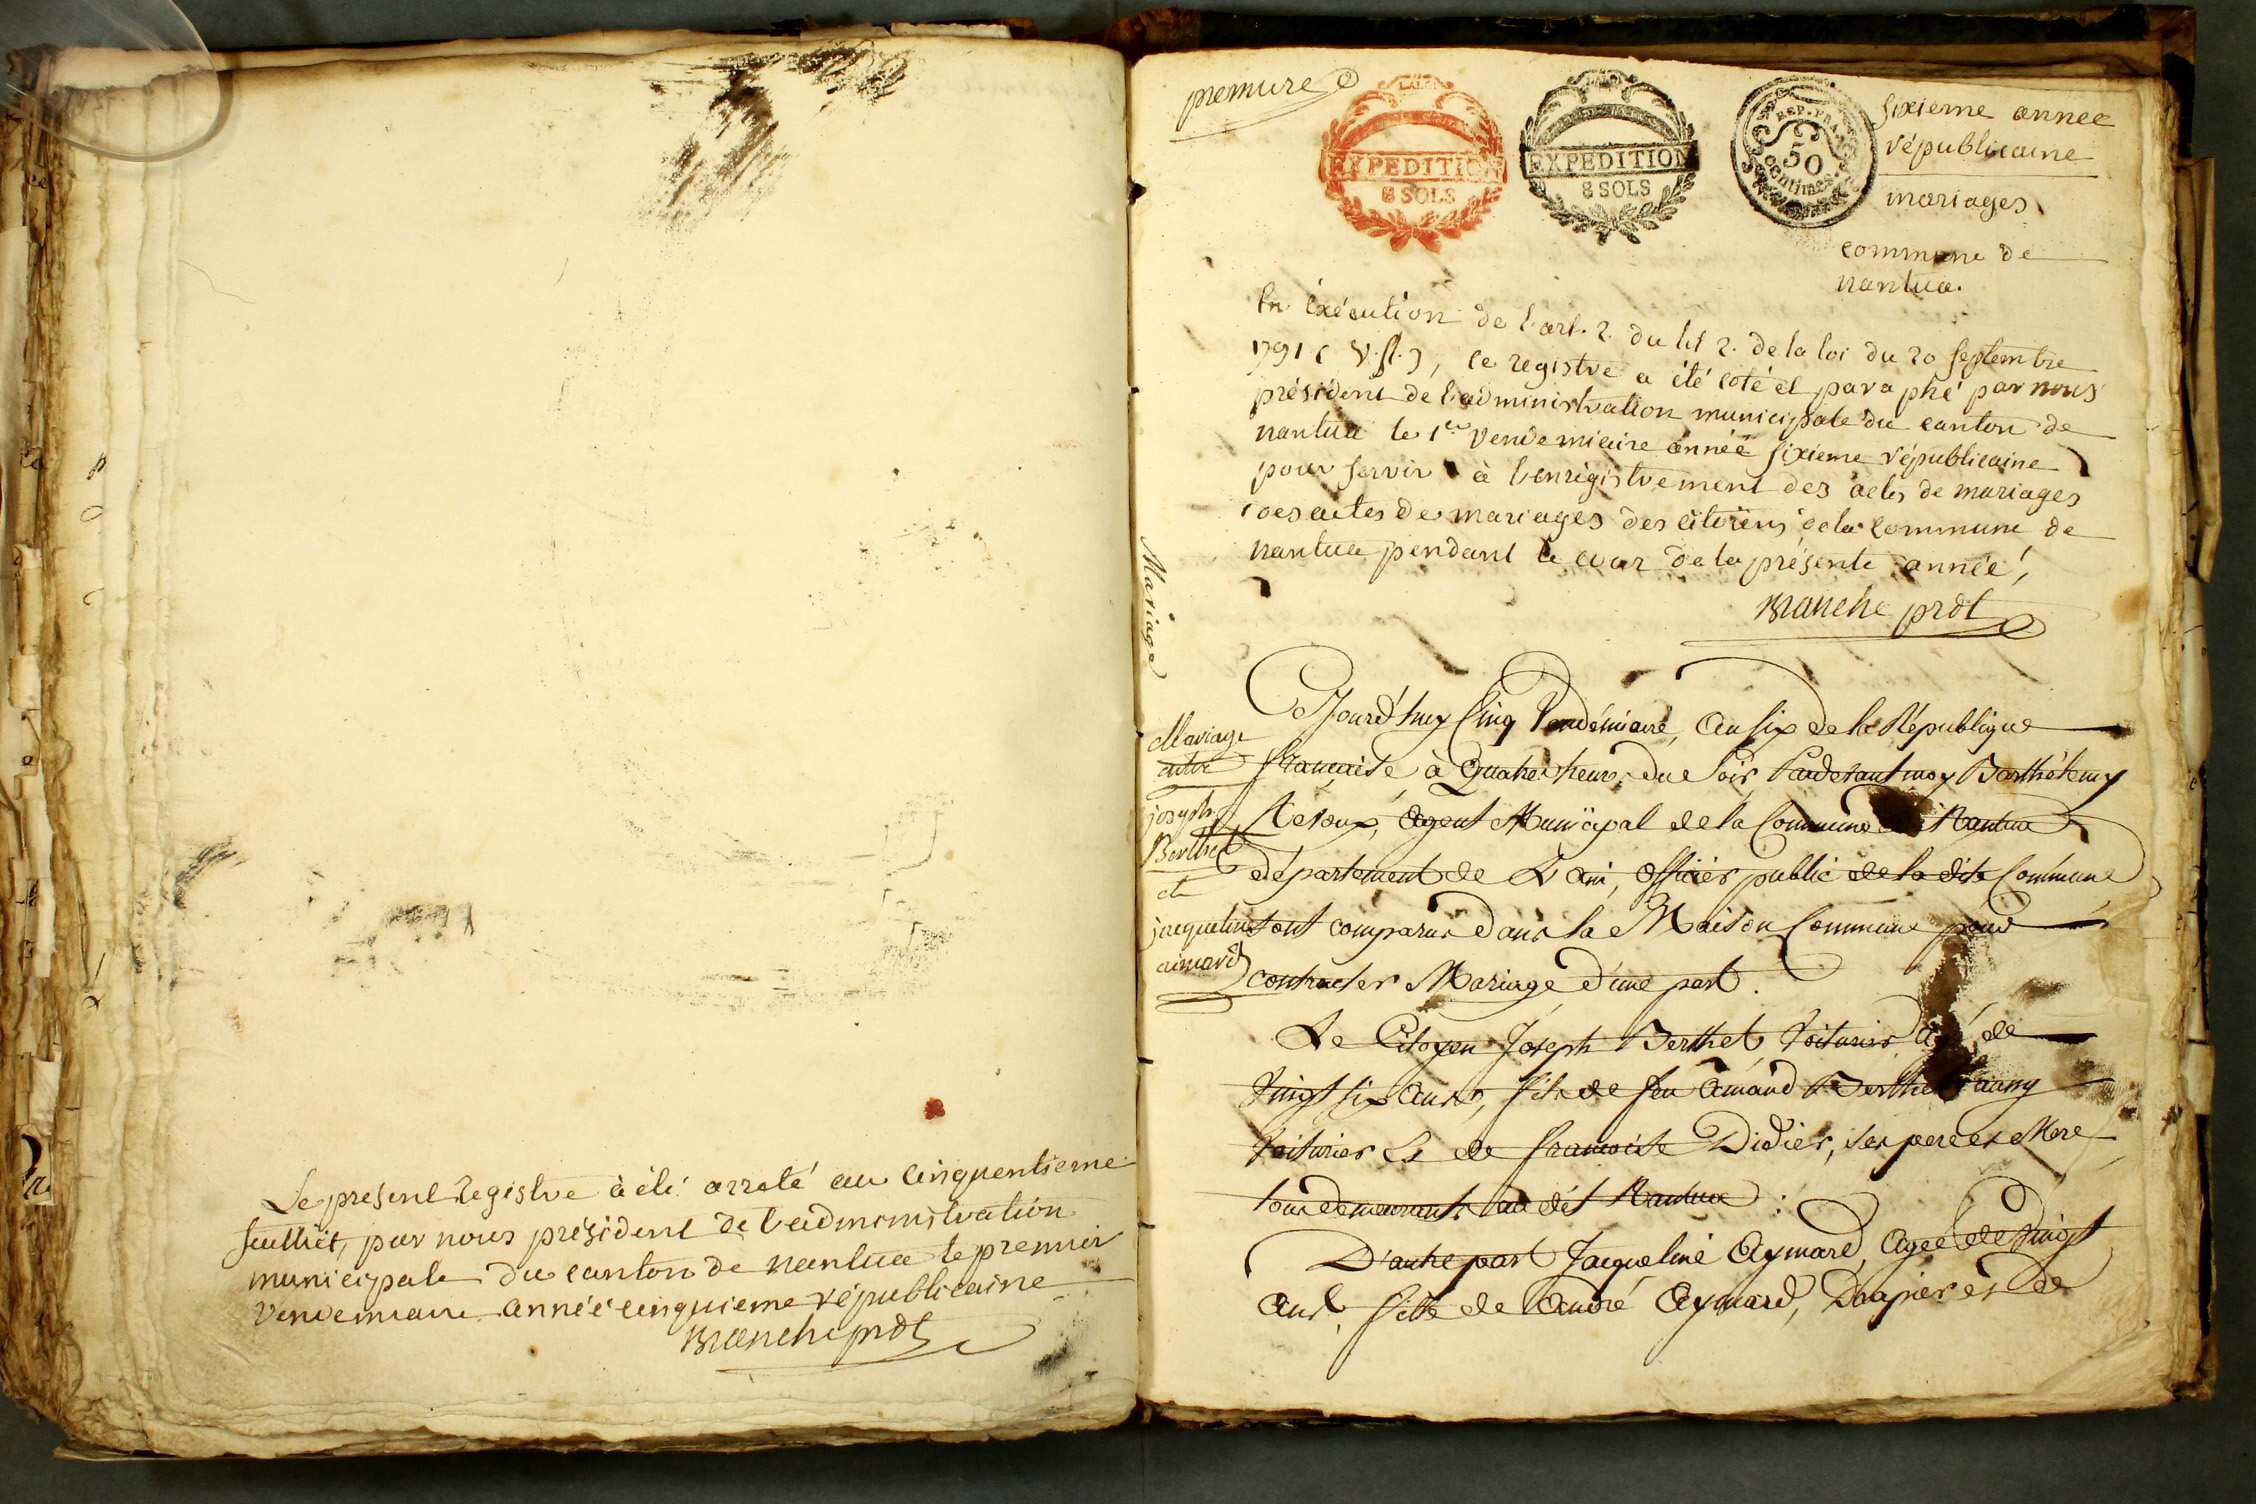 Le present Registre à été arreté au Cinquentieme
feulliet, par nous président de l'administration
municipale du canton de nantua le premier
vendemiaire année cinquieme républicaine
Branche prdt
premiere
EXPEDITION
8 SOLS
EXPEDITION
8 SOLS
REP. FRA.
50
centimes
sixieme annee
républicaine
mariages
commune de
nantua.
En éxécution de l'art. 2. du tit 2. de la loi du 20 septembre
1791 (V. st.), ce registre a été coté et paraphé par nous
président de l'administration municipale du canton de
nantua le 1er vendemiaire année sixieme républicaine
pour servir à l'enrégistrement des actes de mariages
des actes de mariages des citoïens de la commune de
nantua pendant le cour de la présente année,
Branche prdt
Mariage
Mariage
entre
joseph
Berthet
et
jacqueline
aimard
Cejourd'huy Cinq Vendémiaire, an six de la République
française à Quatre heures du soir, Pardevant moy Barthélemy
agent Municipal de la Commune de Nantua
département de L'ain, officier public de la dite Commune
sont comparus dans la Maison Commune pour
contracter Mariage d'une part.
Le Citoyen Joseph Berthet Voiturier, agé de
Vingt six ans, fils de feu amand Berthet
Voiturier et de françoise Didier, ses pere et Mere
tous demeurants au dit Nantua :
D'autre part Jacqueline Aymard, agée de Vingt
ans, fille de andré Aymard, Drapier et de